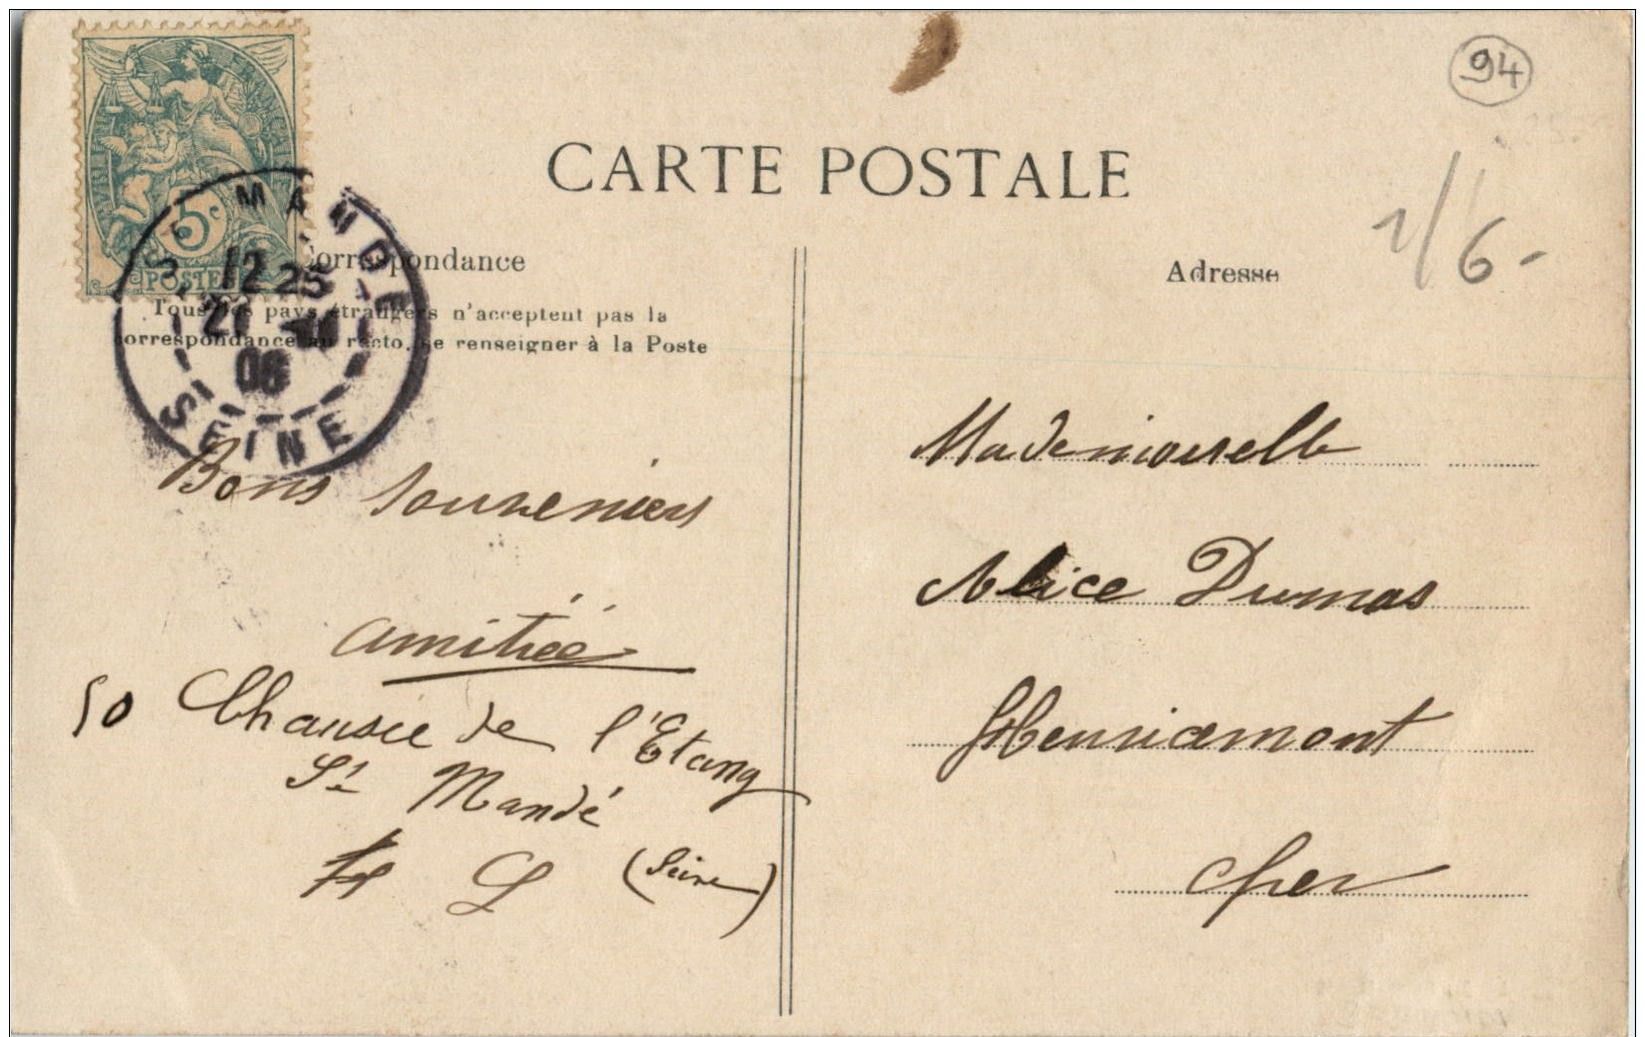 94
CARTE POSTALE
1/6-
Correspondance
Tous les pays étrangers n'acceptent pas la
correspondance au recto. Se renseigner à la Poste
5c
POSTES
ST MANDE
12 25
21
06
SEINE
Bons souveniers
amitiée
50 Chausée de l'Etang
St Mandé
(Seine)
L
Adresse
Mademoiselle
Alice Dumas
Henricemont
Cher